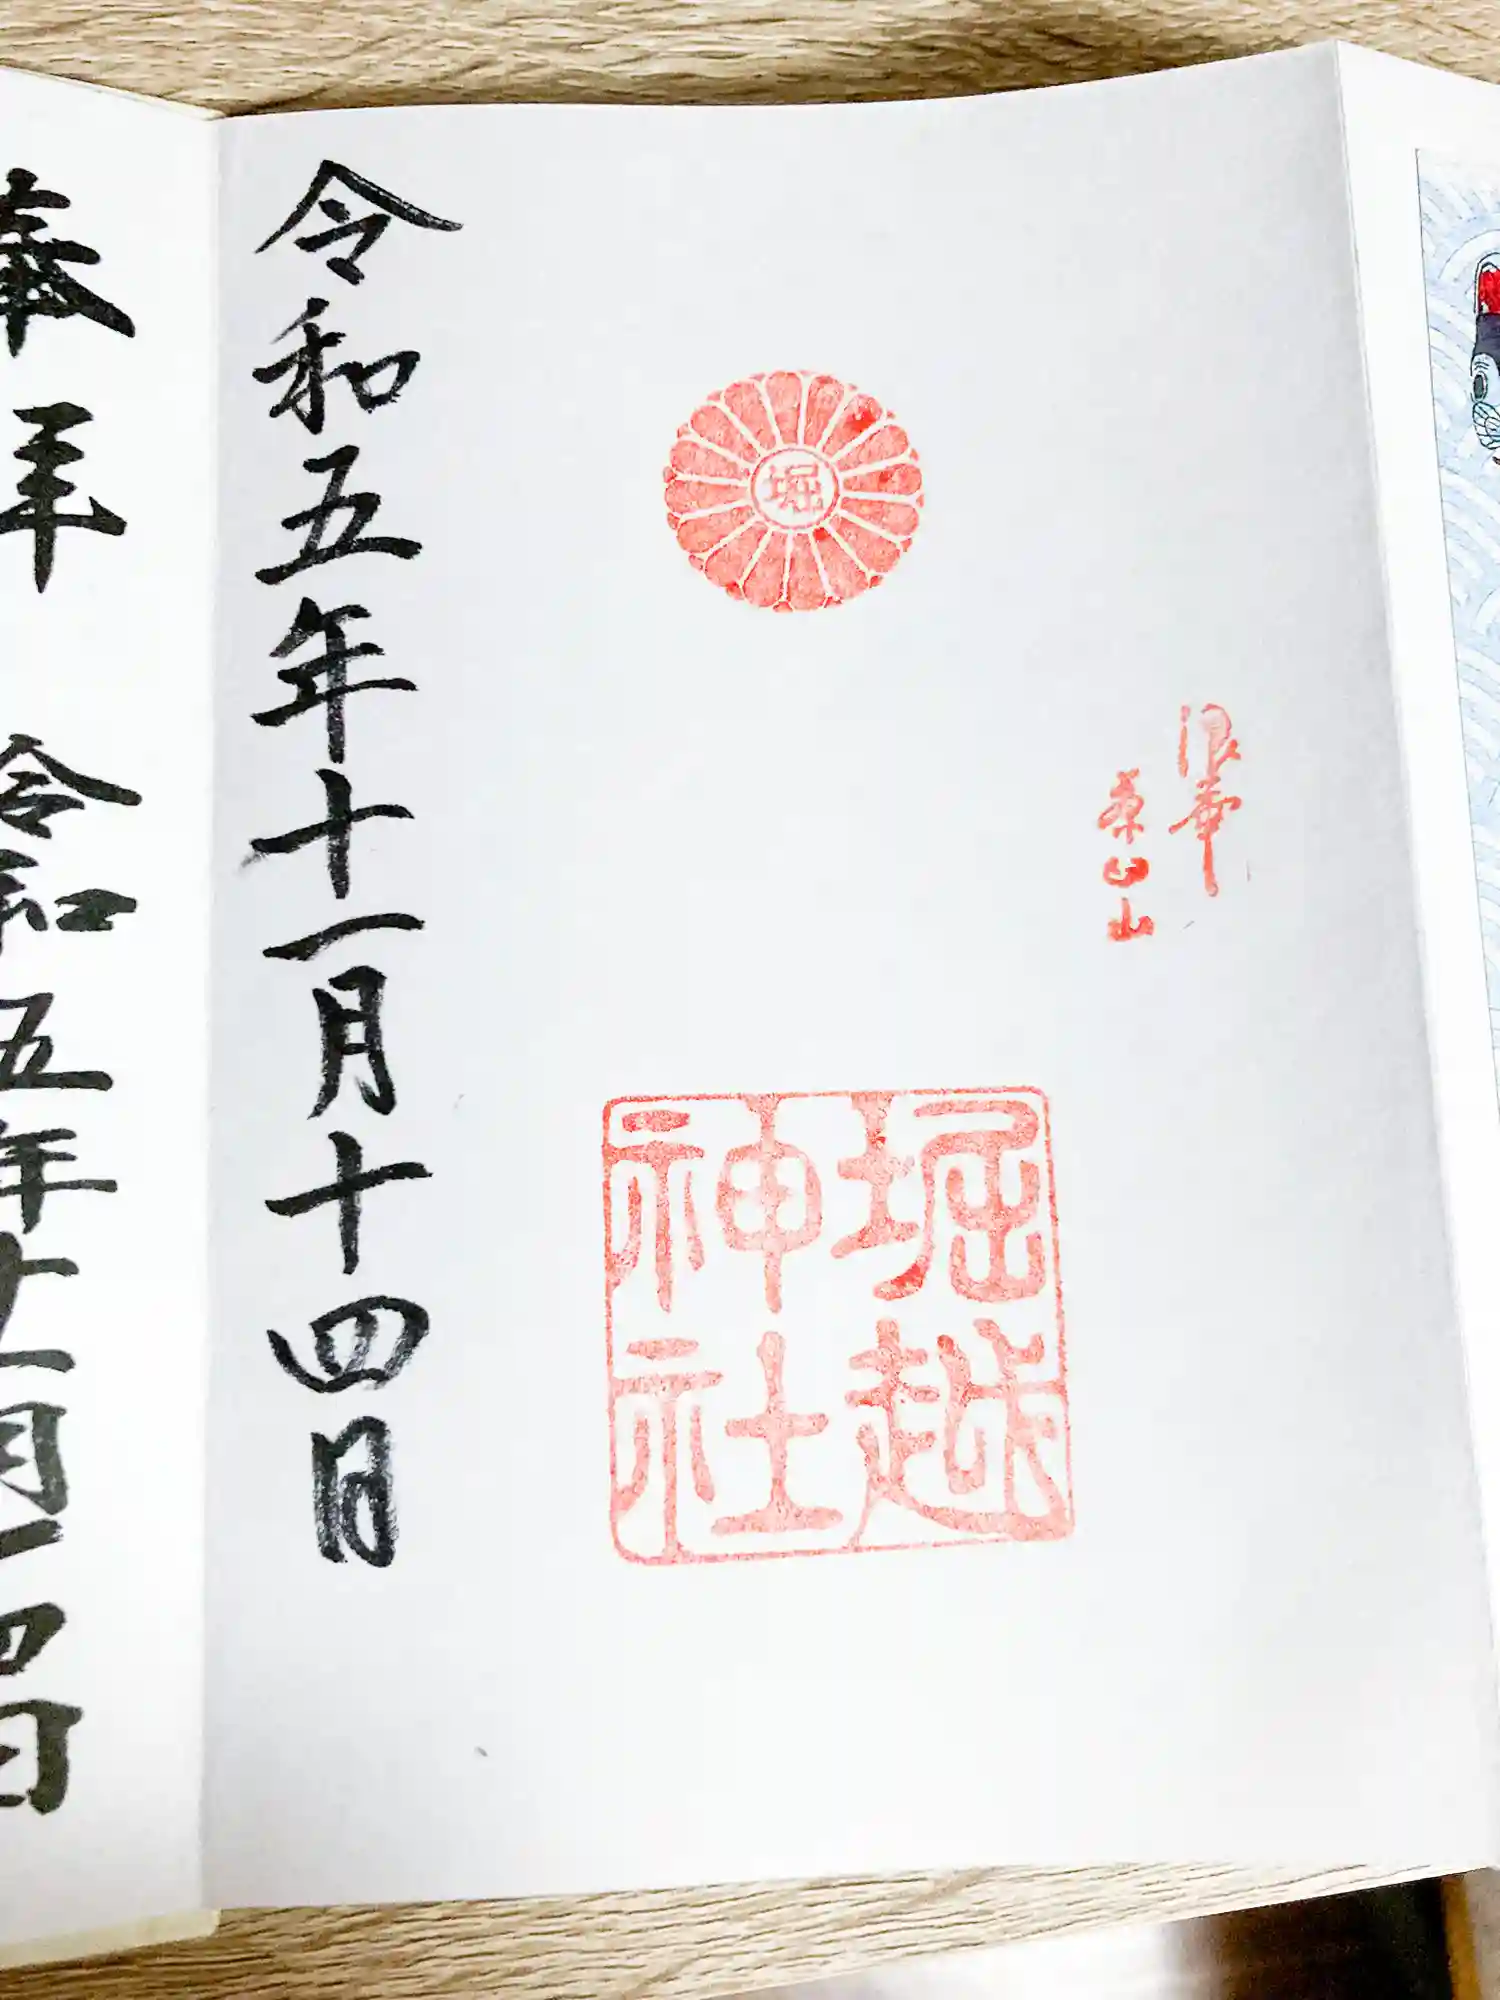 浪華
茶臼山
堀
堀越
神社
令和五年十一月十四日
奉拝
令和五年十一月十四日